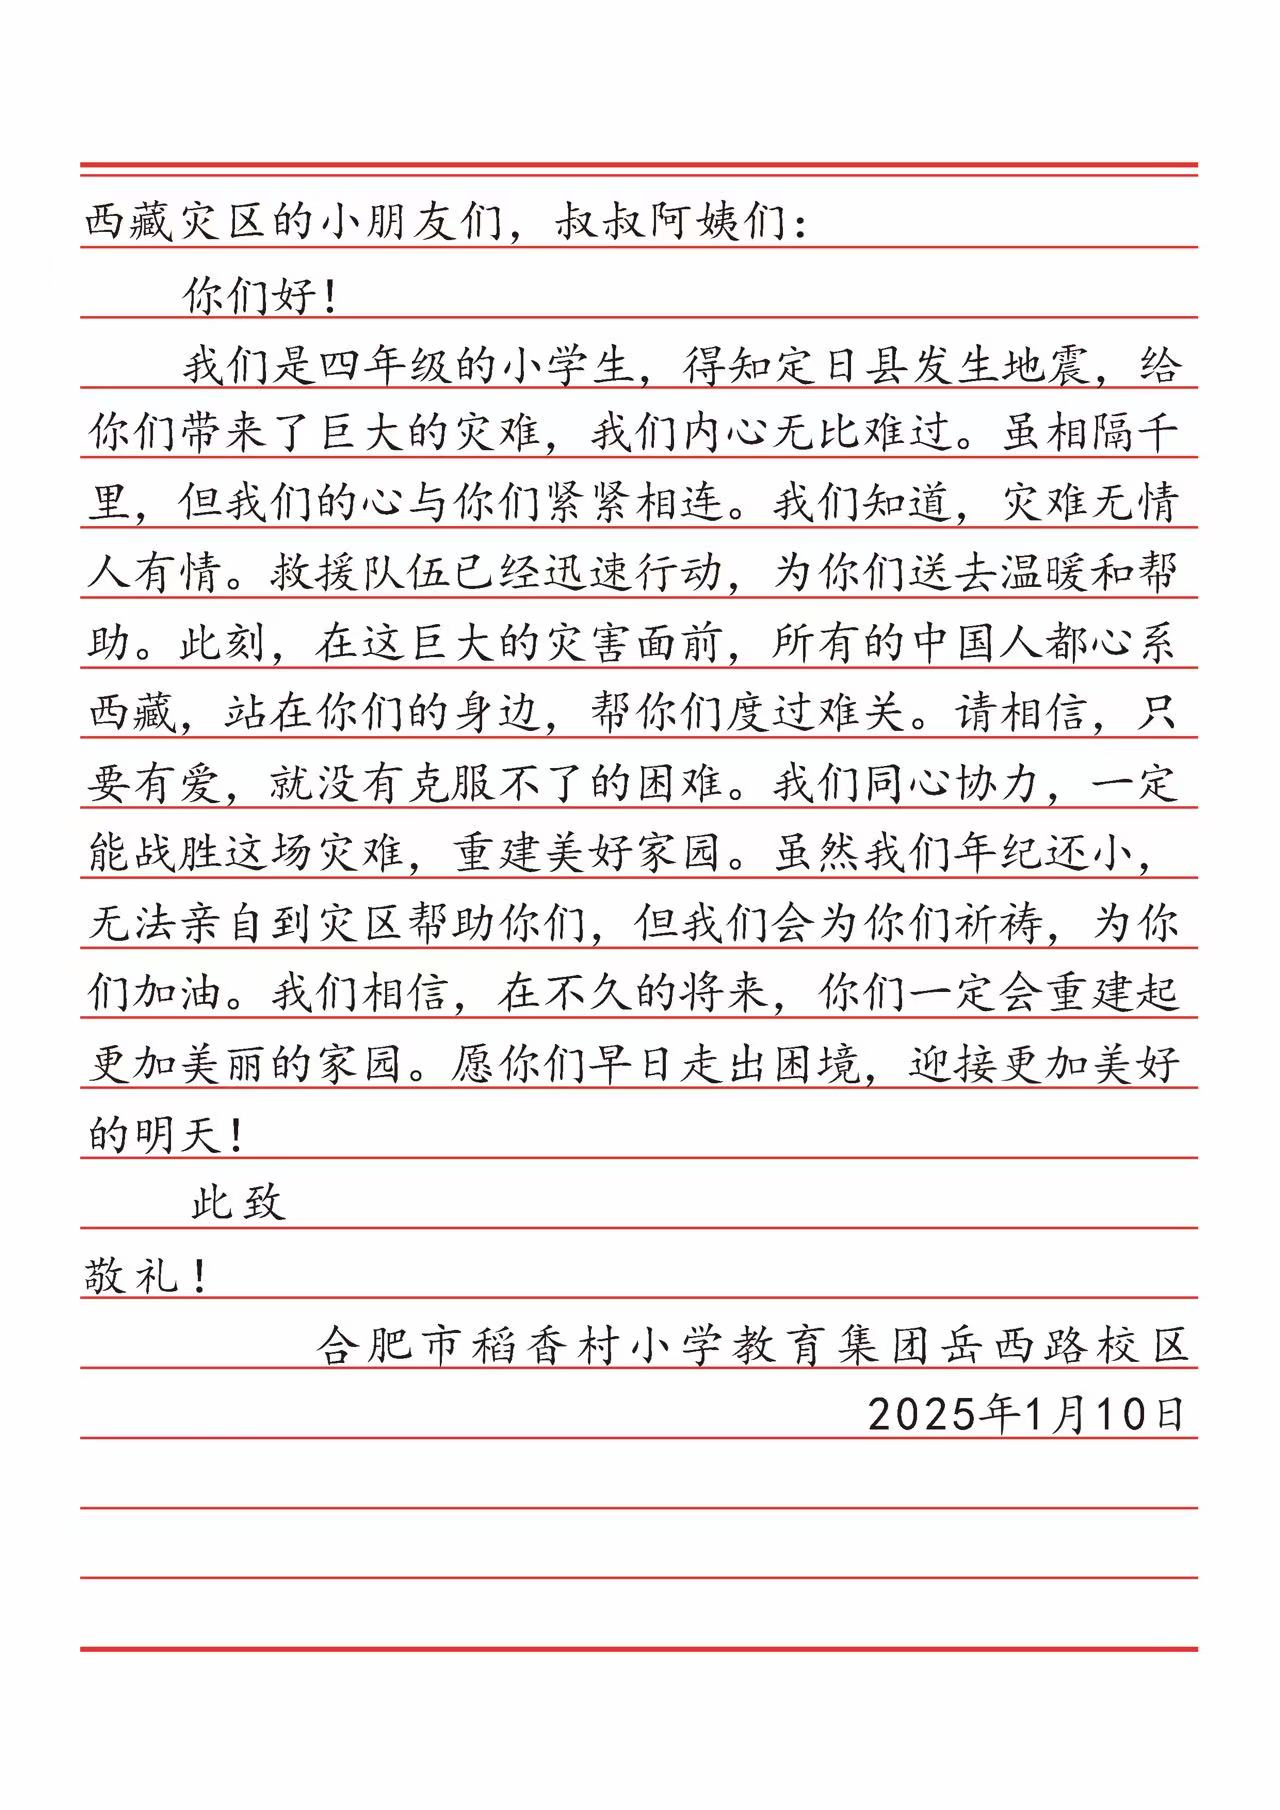 西藏灾区的小朋友们，叔叔阿姨们：
你们好！
我们是四年级的小学生，得知定日县发生地震，给
你们带来了巨大的灾难，我们内心无比难过。虽相隔千
里，但我们的心与你们紧紧相连。我们知道，灾难无情
人有情。救援队伍已经迅速行动，为你们送去温暖和帮
助。此刻，在这巨大的灾害面前，所有的中国人都心系
西藏，站在你们的身边，帮你们度过难关。请相信，只
要有爱，就没有克服不了的困难。我们同心协力，一定
能战胜这场灾难，重建美好家园。虽然我们年纪还小，
无法亲自到灾区帮助你们，但我们会为你们祈祷，为你
们加油。我们相信，在不久的将来，你们一定会重建起
更加美丽的家园。愿你们早日走出困境，迎接更加美好
的明天！
此致
敬礼！
合肥市稻香村小学教育集团岳西路校区
2025年1月10日